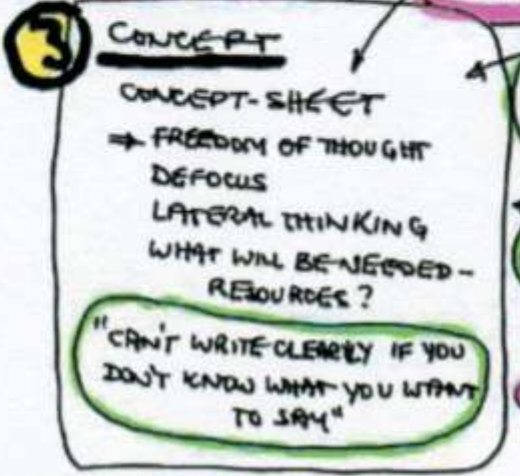 3
CONCEPT
CONCEPT-SHEET
⇒ FREEDOM OF THOUGHT
DEFOCUS
LATERAL THINKING
WHAT WILL BE NEEDED -
RESOURCES?
"CAN'T WRITE CLEARLY IF YOU
DON'T KNOW WHAT YOU WANT
TO SAY"